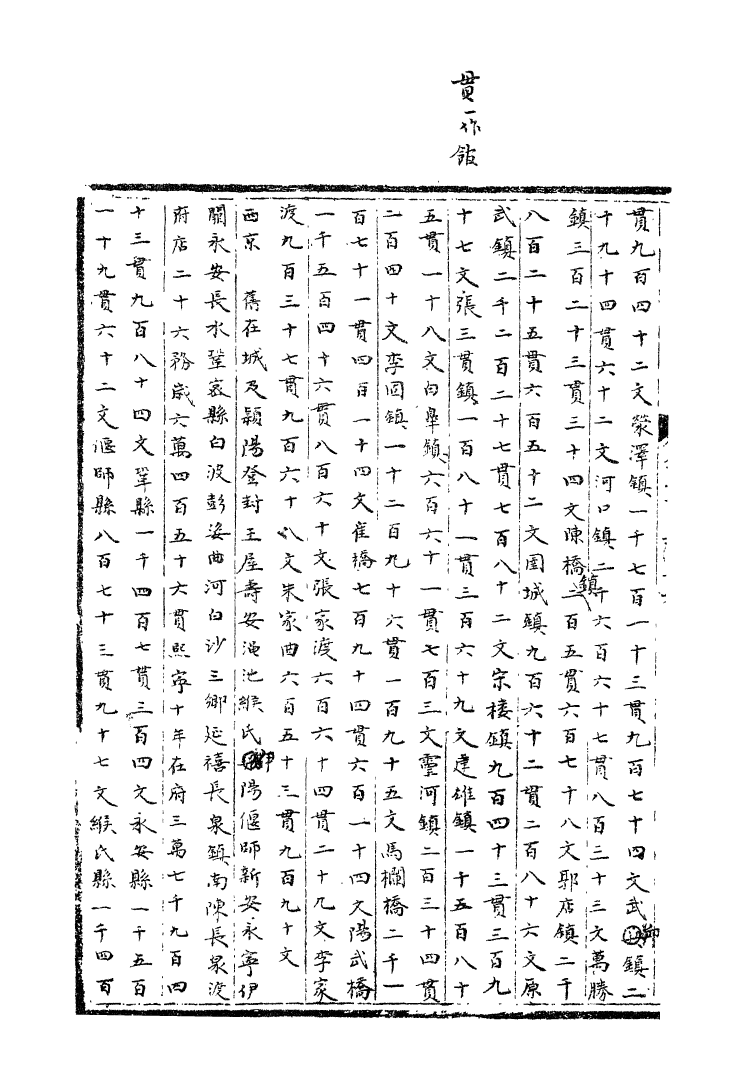 貫一作館
貫九百四十二文滎澤鎮一千七百一十三貫九百七十四文武丘鎮二
千九十四貫六十二文河口鎮二千六百六十七貫八百三十三文萬勝
鎮三百二十三貫三十四文陳橋鎮二百五貫六百七十八文郭店鎮二千
八百二十五貫六百五十二文圉城鎮九百六十二貫二百八十六文原
武鎮二千二百二十七貫七百八十二文宗樓鎮九百四十三貫三百九
十七文張三貫鎮一百八十一貫三百六十九文建雄鎮一千五百八十
五貫一十八文白皋鎮六百六十一貫七百三文靈河鎮二百三十四貫
二百四十文李固鎮一十二百九十六貫一百九十五文馬欄橋二千一
百七十一貫四百一十四文崔橋七百九十四貫六百一十四文陽武橋
一千五百四十六貫八百六十文張家渡六百六十四貫二十九文李家
渡九百三十七貫九百六十八文朱家曲六百五十三貫九百九十文
西京 舊在城及潁陽登封王屋壽安澠池緱氏陽偃師新安永寧伊
闕永安長水登密縣白波彭婆曲河白沙三鄉延禧長泉鎮南陳長泉渡
府店二十六務歲六萬四百五十六貫熙寧十年在府三萬七千九百四
十三貫九百八十四文鞏縣一千四百七貫三百四文永安縣一千五百
一十九貫六十二文偃師縣八百七十三貫九十七文緱氏縣一千四百